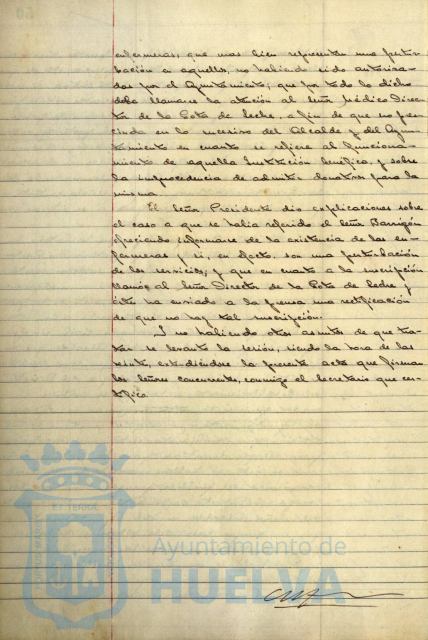 enfermeras, que mas bien representan una pertur-
bación en aquellos, no habiendo sido autoriza-
das por el Ayuntamiento; que por todo lo dicho
debe llamarse la atención al Señor Médico Direc-
tor de la Gota de Leche, a fin de que no pres-
cinda en lo sucesivo del Alcalde y del Ayun-
tamiento en cuanto se refiere al funciona-
miento de aquella Institución benéfica, y sobre
la improcedencia de admitir donativos para la
misma.
El Señor Presidente dio explicaciones sobre
el caso a que se habia referido el Señor Barrigón
ofreciendo informarse de la existencia de las en-
fermeras y si, en efecto, son una perturbación
de los servicios; y que en cuanto a la suscripción
llamó al Señor Director de la Gota de Leche y
éste ha enviado a la prensa una rectificación
de que no hay tal suscripción.
Y no habiendo otros asuntos de que tra-
tar se levantó la sesión, siendo la hora de las
veinte, extendiéndose la presente acta que firman
los Señores concurrentes, conmigo el Secretario que cer-
tifico.
Ayuntamiento de
HUELVA